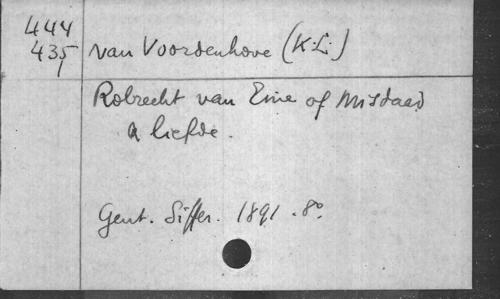 444
435 van Voordenhove (K.L.)
Robrecht van Eine of Misdaad
& liefde.
Gent. Siffer. 1891. 8°